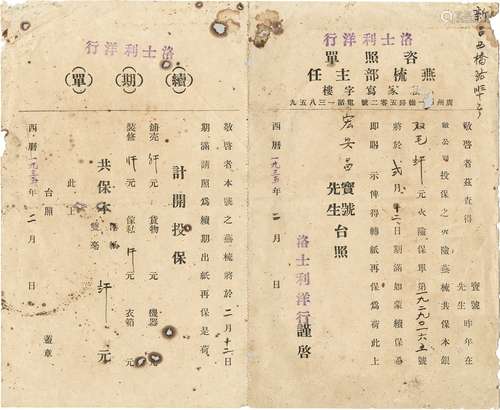 洛士利洋行
咨照單
燕梳部主任
家寫字樓
廣州一德路五零二號電話一三八五九
敬啓者茲查得
寶號
先生
昨年在
敝公司投保之火險燕梳共保本銀
双毛 元火險保單第一九二九〇一六五號
將於弍月十二日期滿如蒙續保
即賜 示俾得轉紙再保為荷此上
宏安昌
寶號
先生
台照
洛士利洋行謹啓
西曆一九三五年二月 日
洛士利洋行
續期單
敬啓者本號之燕梳將於二月十二日
期滿請照為續期出紙再保是荷
計開投保
舖壳 元 貨物 元 機器 元
裝修 元 傢私 元 衣箱 元
共保本
毫 元
此上
台照
蓋章
西曆一九三五年二月 日